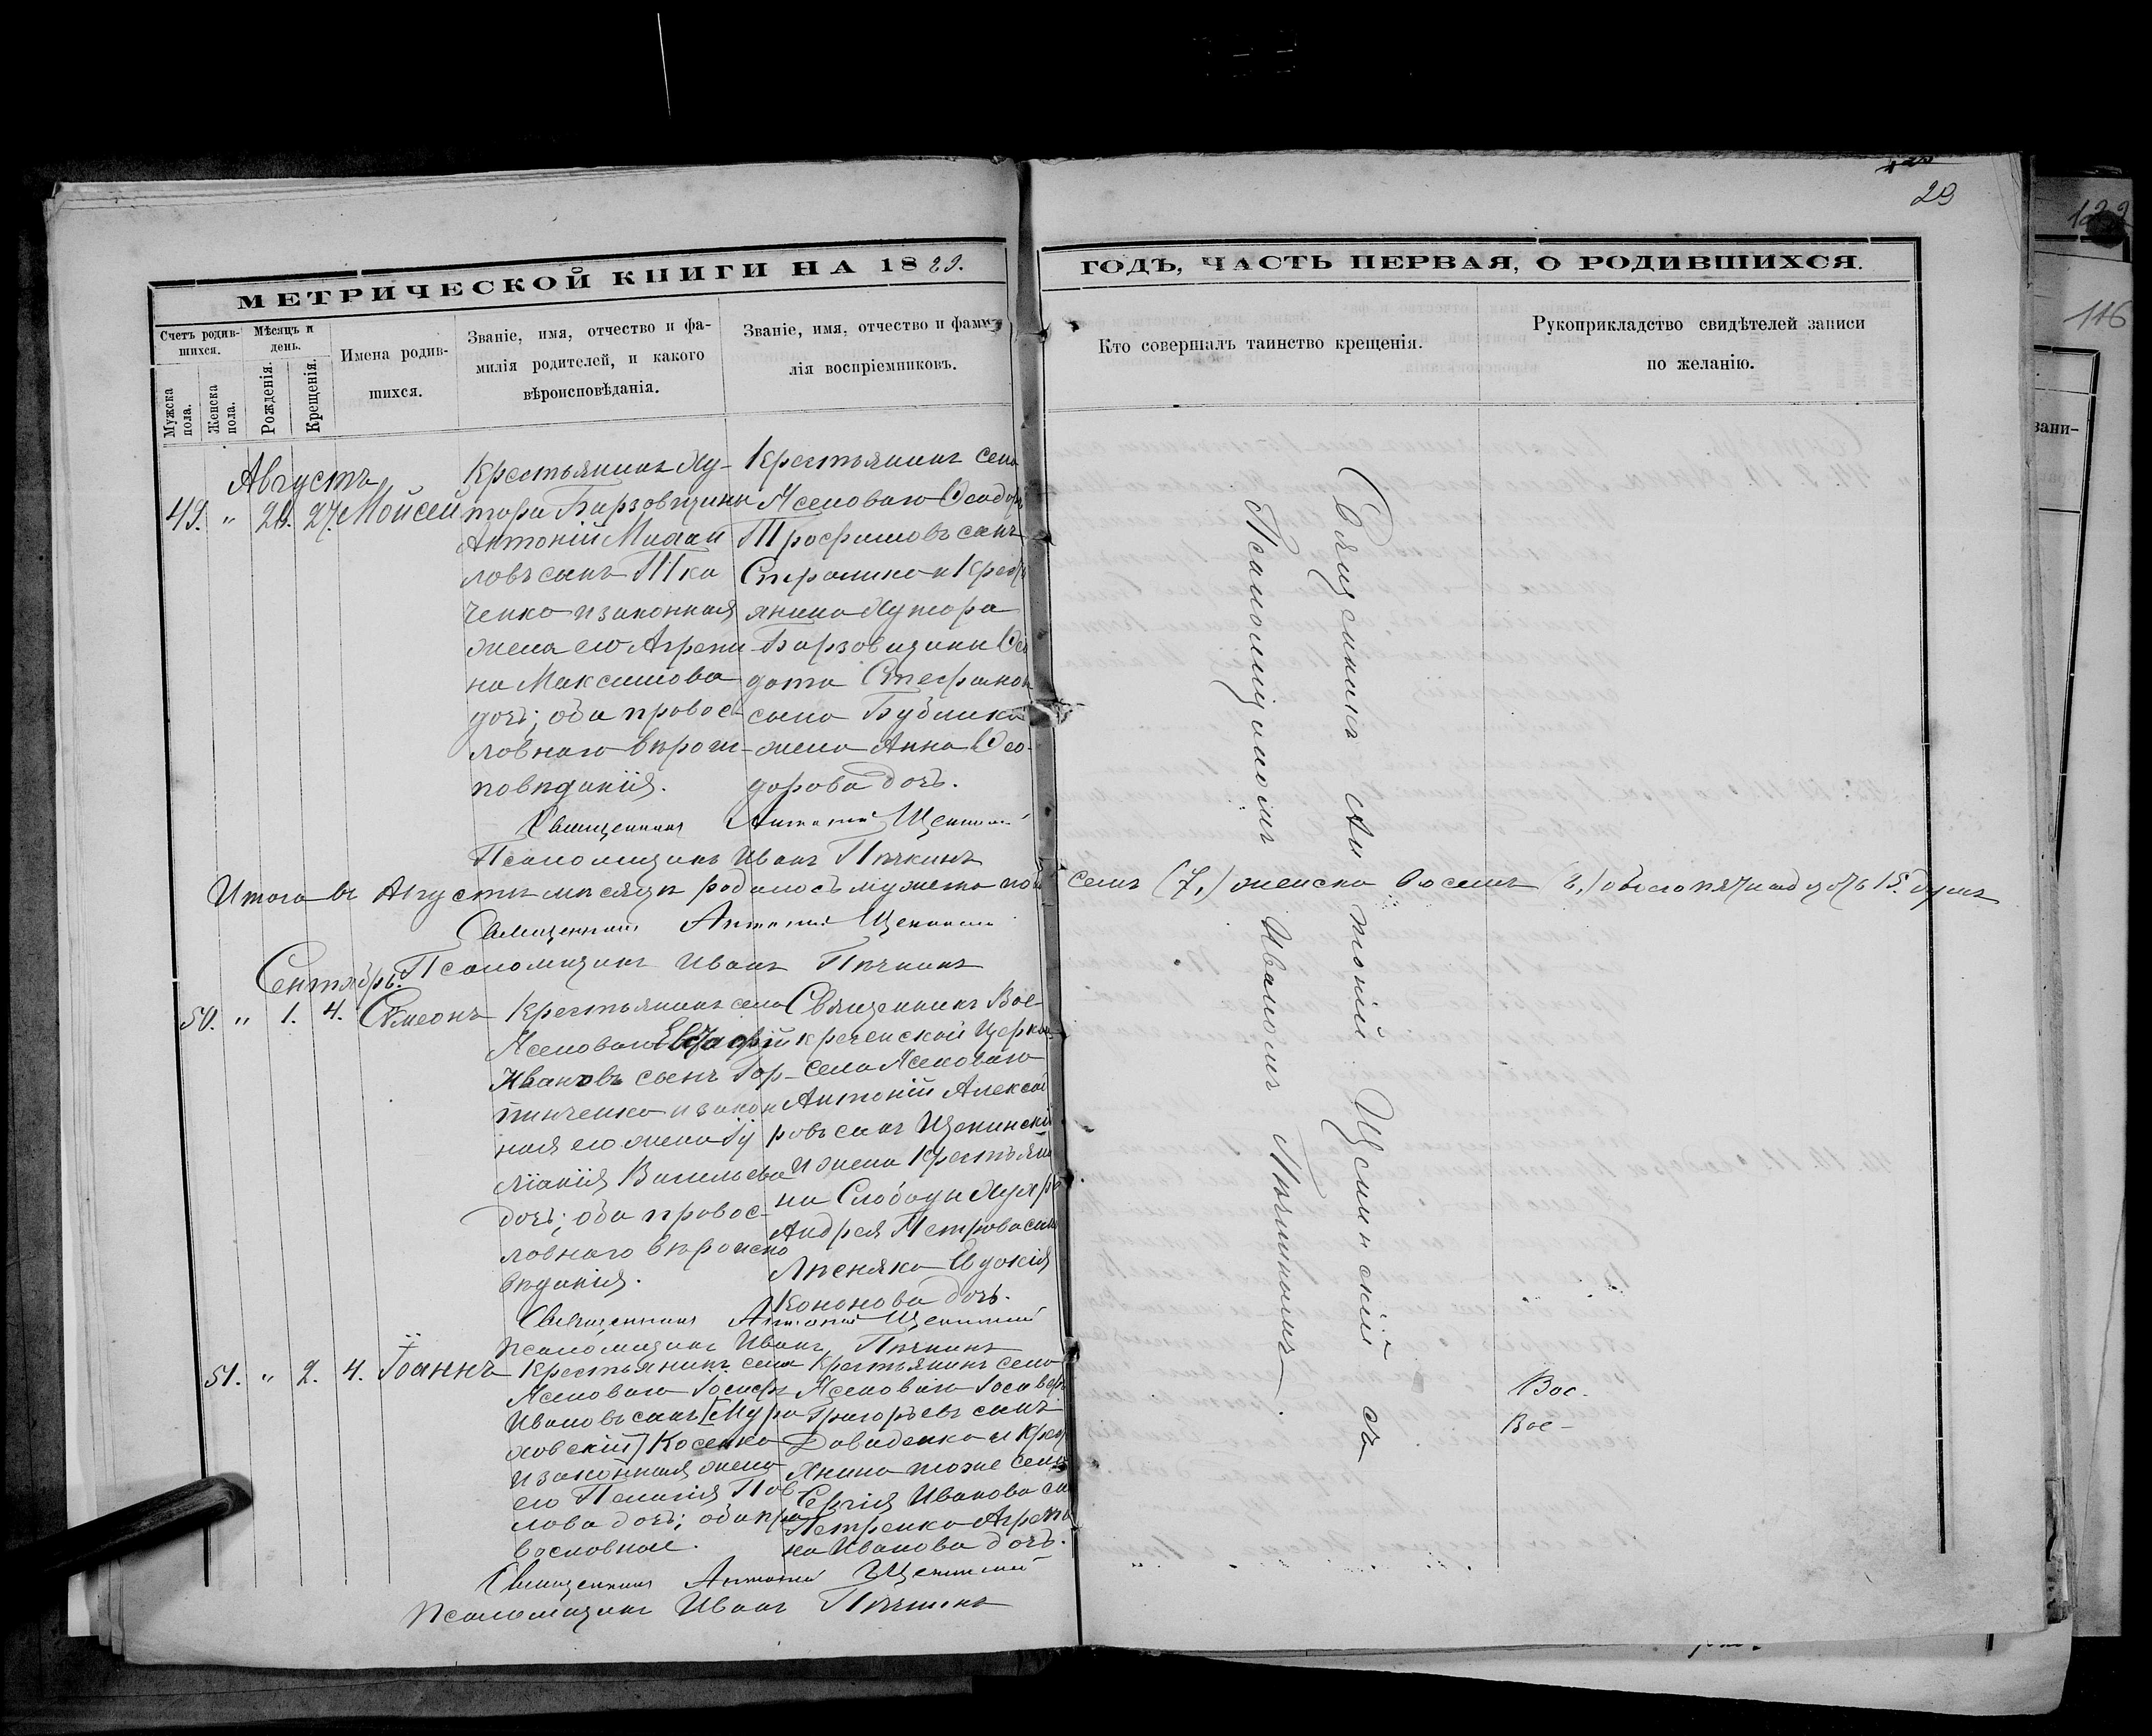 29
122
116
МЕТРИЧЕСКОЙ КНИГИ НА 1889.
ГОДЪ, ЧАСТЬ ПЕРВАЯ, О РОДИВШИХСЯ.
Счетъ родив-
шихся.
Мужска
пола.
Женска
пола.
Мѣсяцъ и
день.
Рожденія.
Крещенія.
Имена родив-
шихся.
Званіе, имя, отчество и фа-
милія родителей, и какого
вѣроисповѣданія.
Званіе, имя, отчество и фами-
лія воспріемниковъ.
Кто совершалъ таинство крещенія.
Рукоприкладство свидѣтелей записи
по желанію.
зани-
Августъ
49. " 27. Мойсей
Крестьянинъ Ху-
тора
Антоній Михаи
ловъ сынъ Тка
ченко и законная
жена его Агрепи
на Максимова
дочь; оба правос-
лавнаго вѣроис-
повѣданія.
Крестьянинъ села
Ясеноваго Ѳеодоръ
Трофимовъ сынъ
и Кресть
янина Хутора
Стефанов
сына Бублика
жена Анна Ѳео-
дорова дочь.
Священникъ Антоній Щекинскій
Псаломщикъ Иванъ Пѣчкинъ
Итого въ Августѣ мѣсяцѣ родилось мужеска пола семь (7,) женска восемь 8,) обоего пятнадцать 15. душъ
Священникъ Антоній Щекинскій
Псаломщикъ Иванъ Пѣчкинъ
Сентябрь.
50. " 1. 4. Сѵмеонъ
Крестьянинъ села
Ясеноваго
Ивановъ сынъ Гор-
пинченко и закон
ная его жена Іу
ліанія Васильева
дочь; оба правос-
лавнаго вѣроиспо
вѣданія.
Священникъ Вос-
кресенской Церкви
села Ясеноваго
Антоній Александ
ровъ сынъ Щекинскій
и жена Крестьяни
на Слободы
Андрея Петрова сына
Евдокія
Кононова дочь.
Священникъ Антоній Щекинскій
Псаломщикъ Иванъ Пѣчкинъ
51. " 2. 4. Іоаннъ
Крестьянинъ села
Ясеноваго Іосифъ
Ивановъ сынъ [Мура
ховскій] Косенко
и законная жена
его Пелагія Пав
лова дочь; оба пра
вославные.
Крестьянинъ села
Ясеноваго
Григорьевъ сынъ
Давиденко и Крест
янина тоже села
Сергія Иванова сы
Петренко Агрепи
на Иванова дочь.
Священникъ Антоній Щекинскій
Псаломщикъ Иванъ Пѣчкинъ
Священникъ Антоній Щекинскій съ
Псаломщикомъ Иваномъ Пѣчкинымъ.
Вос-
Вос-